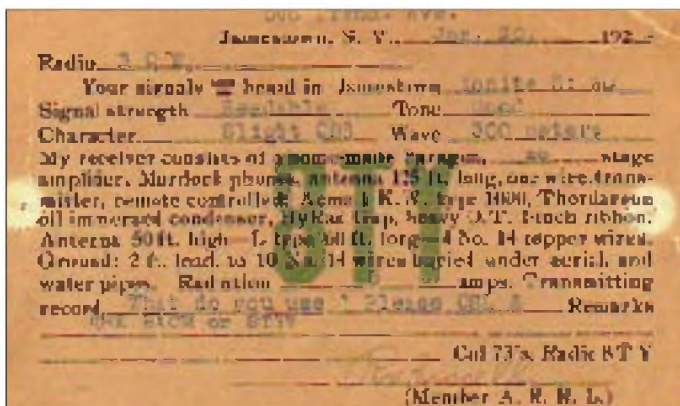 Jamestown, N. Y., Jan. 20, 192
Radio
Your signals heard in Jamestown Tonite
Signal strength Readable Tone Good
Character Slight QRM Wave 300 meters
My receiver consists of a home-made Paragon, no stage
amplifier, Murdock phones, antenna 125 ft. long, one wire, trans-
mitter, remote controlled; Acme 1 K. W. type 1000, Thordarson
oil immersed condenser, HyRad trap, heavy O. T. 1-inch ribbon.
Antenna 50 ft. high—L type 60 ft. long—4 No. 14 copper wires.
Ground: 2 ft. lead, to 10 No. 14 wires buried under aerial, and
water pipes. Radiation amps. Transmitting
record What do you use ? Please QSL Remarks
8TY
Cul 73's, Radio 8 T Y
(Member A. R. R. L.)